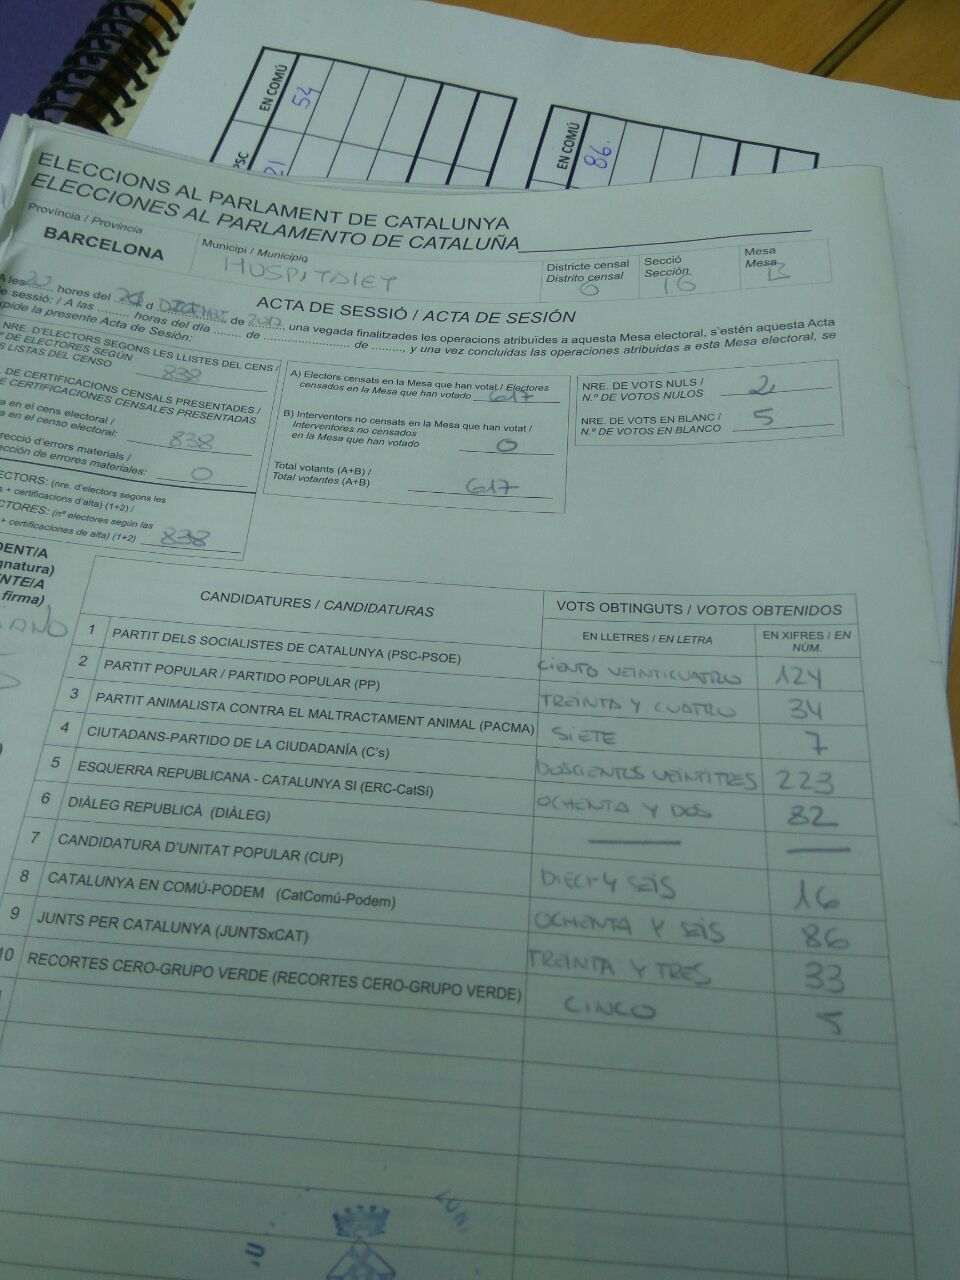 EN COMÚ
54
PSC
21
EN COMÚ
86.
ELECCIONS AL PARLAMENT DE CATALUNYA
ELECCIONES AL PARLAMENTO DE CATALUÑA
Província / Provincia
BARCELONA
Municipi / Municipio
HOSPITALET
Districte censal
Distrito censal
6
Secció
Sección
16
Mesa
Mesa
B
ACTA DE SESSIÓ / ACTA DE SESIÓN
A les 22 hores del 21 d de 2017, una vegada finalitzades les operacions atribuïdes a aquesta Mesa electoral, s'estén aquesta Acta
de sessió: / A las ........ horas del día ........ de ........................ de ........, y una vez concluidas las operaciones atribuidas a esta Mesa electoral, se
pide la presente Acta de Sesión:
NRE. D'ELECTORS SEGONS LES LLISTES DEL CENS /
º DE ELECTORES SEGÚN
S LISTAS DEL CENSO
838
. DE CERTIFICACIONS CENSALS PRESENTADES /
E CERTIFICACIONES CENSALES PRESENTADAS
a en el cens electoral /
a en el censo electoral:
838
recció d'errors materials /
cción de errores materiales:
0
ECTORS: (nre. d'electors segons les
s + certificacions d'alta) (1+2) /
CTORES: (nº electores según las
+ certificaciones de alta) (1+2)
838
A) Electors censats en la Mesa que han votat / Electores
censados en la Mesa que han votado 617
B) Interventors no censats en la Mesa que han votat /
Interventores no censados
en la Mesa que han votado
0
Total votants (A+B) /
Total votantes (A+B)
617
NRE. DE VOTS NULS /
N.º DE VOTOS NULOS
2
NRE. DE VOTS EN BLANC /
N.º DE VOTOS EN BLANCO
5
DENT/A
gnatura)
NTE/A
firma)
CANDIDATURES / CANDIDATURAS
VOTS OBTINGUTS / VOTOS OBTENIDOS
EN LLETRES / EN LETRA
EN XIFRES / EN
NÚM.
1 PARTIT DELS SOCIALISTES DE CATALUNYA (PSC-PSOE) CIENTO VEINTICUATRO 124
2 PARTIT POPULAR / PARTIDO POPULAR (PP) TREINTA Y CUATRO 34
3 PARTIT ANIMALISTA CONTRA EL MALTRACTAMENT ANIMAL (PACMA) SIETE 7
4 CIUTADANS-PARTIDO DE LA CIUDADANÍA (C's) DOSCIENTOS VEINTITRES 223
5 ESQUERRA REPUBLICANA - CATALUNYA SI (ERC-CatSí) OCHENTA Y DOS 82
6 DIÀLEG REPUBLICÀ (DIÀLEG)
7 CANDIDATURA D'UNITAT POPULAR (CUP) DIECI Y SEIS 16
8 CATALUNYA EN COMÚ-PODEM (CatComú-Podem) OCHENTA Y SEIS 86
9 JUNTS PER CATALUNYA (JUNTSxCAT) TREINTA Y TRES 33
10 RECORTES CERO-GRUPO VERDE (RECORTES CERO-GRUPO VERDE) CINCO 5